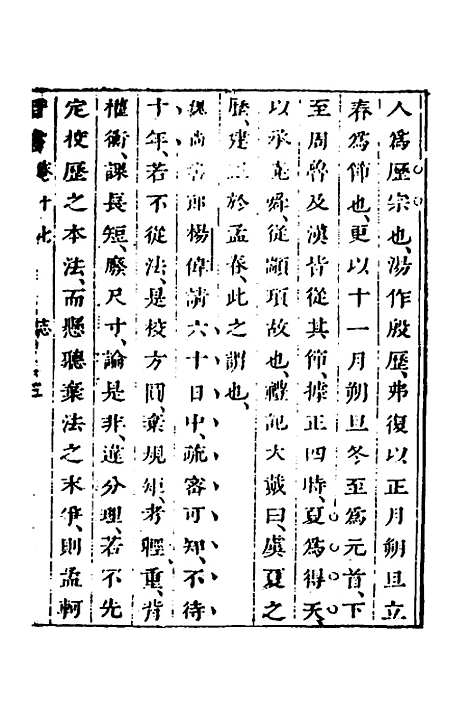 人爲歷宗也、湯作殷歷、弗復以正月朔旦立
春爲節也、更以十一月朔旦冬至爲元首、下
至周魯及漢皆從其節、據正四時、夏爲得天、
以承堯舜、從顓頊故也、禮記大戴曰、虞夏之
歷、建正於孟春、此之謂也、
魏尚書郎楊偉請六十日中、疏密可知、不待
十年、若不從法、是校方圓、棄規矩、考輕重、背
權衡、課長短、廢尺寸、論是非、違分理、若不先
定校歷之本法、而懸聽棄法之末爭、則孟軻
晉書 卷十七 志